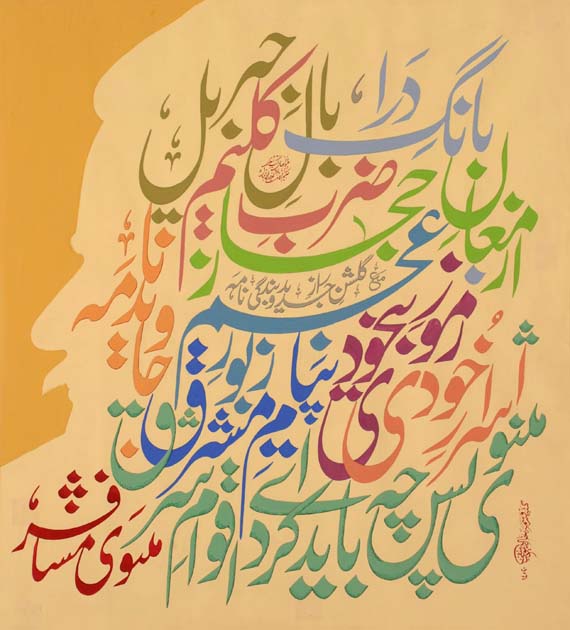 بانگِ درا
بالِ جبریل
ضربِ کلیم
ارمغانِ حجاز
زبورِ عجم
مع گلشن راز جدید و بندگی نامہ
جاوید نامہ
رموزِ بیخودی
اسرارِ خودی
پیامِ مشرق
مثنوی پس چہ باید کرد اے اقوامِ شرق
مثنوی مسافر